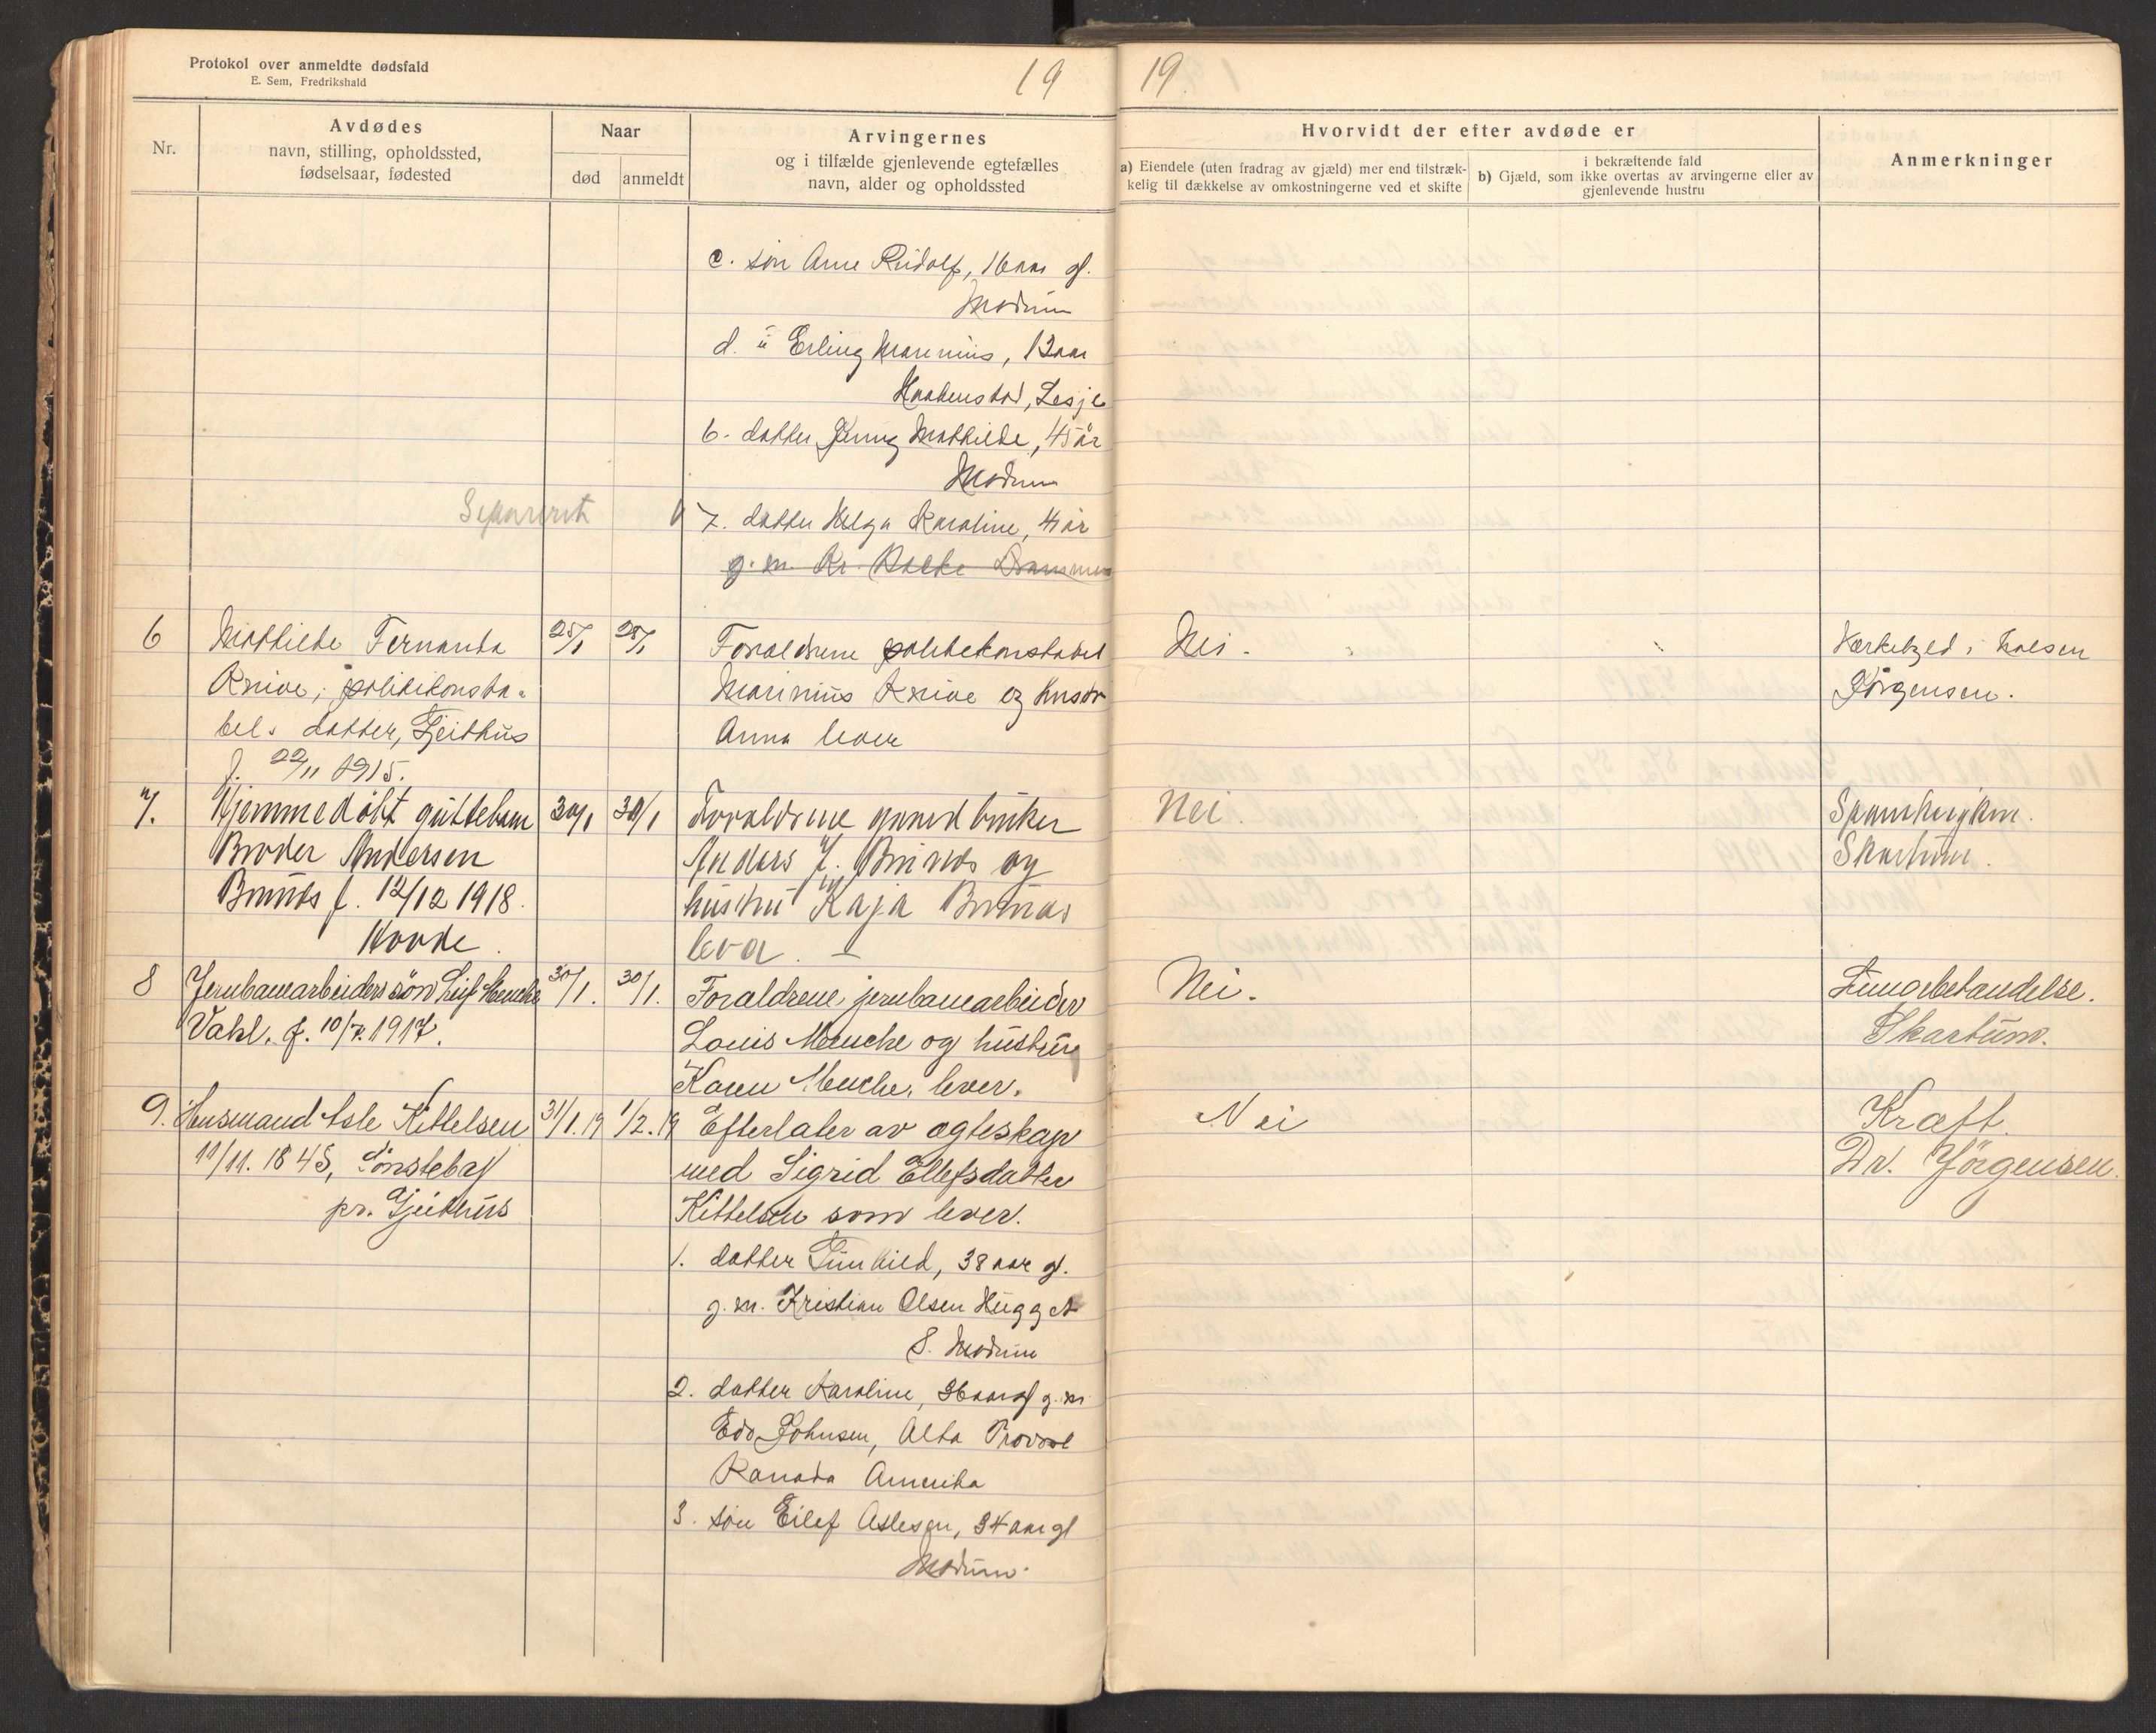 Protokol over anmeldte dødsfald
E. Sem, Fredrikshald
19
19.
Nr.
Avdødes
navn, stilling, opholdssted,
fødselsaar, fødested
Naar
død
anmeldt
Arvingernes
og i tilfælde gjenlevende egtefælles
navn, alder og opholdssted
Hvorvidt der efter avdøde er
a) Eiendele (uten fradrag av gjæld) mer end tilstræk-
kelig til dækkelse av omkostningerne ved et skifte
i bekræftende fald
b) Gjæld, som ikke overtas av arvingerne eller av
gjenlevende hustru
Anmerkninger
c. søn Arne Rudolf, 16 aar gl.
Modum
d. " Erling Marinius, 12 aar
Lesje
6. datter Jenny Mathilde, 45 år
Modum
Separert
7. datter Helga Karoline, 41 år
g. m. Kr. Bakke Drammen
6
Mathilde Fernanda
Knive, politikonsta-
bel. datter, Gjeithus
f. 22/11 1915.
25/1
28/1
Forældrene politikonstabel
Marinius Knive og hustr
Anna lever
Nei.
i halsen
Jörgensen.
7.
Hjemmedöbt guttebarn
Broder Andersen
Brunæs f. 12/12 1918.
Hovde.
30/1
30/1
Forældrene gaardbruker
Anders J. Brunæs og
hustru Kaja Brunæs
lever. —
Nei.
Skartum.
8
Jernbanearbeiders sön Leif Menche
Vahl. f. 10/7. 1917.
30/1.
30/1.
Forældrene, jernbanearbeider
Louis Menche og hustru
Karen Menche, lever.
Nei.
Lungebetændelse.
Skartum.
9.
Husmand Asle Kittelsen
11/11. 1845, Tönstebøl
pr. Gjeithus
31/1.19
1/2.19
Efterlater av ægteskap
med Sigrid Ellefsdatter
Kittelsen som lever.
1. datter Gunhild, 38 aar gl.
g. m. Kristian Olsen Hugget
S. Modum
2. datter Karoline, 36 aar gl g. m
Edv Johnsen, Alta
Kanada Amerika
3. søn Eilef Aslesen, 34 aar gl
Modum.
Nei
Kræft.
Dr. Jörgensen.